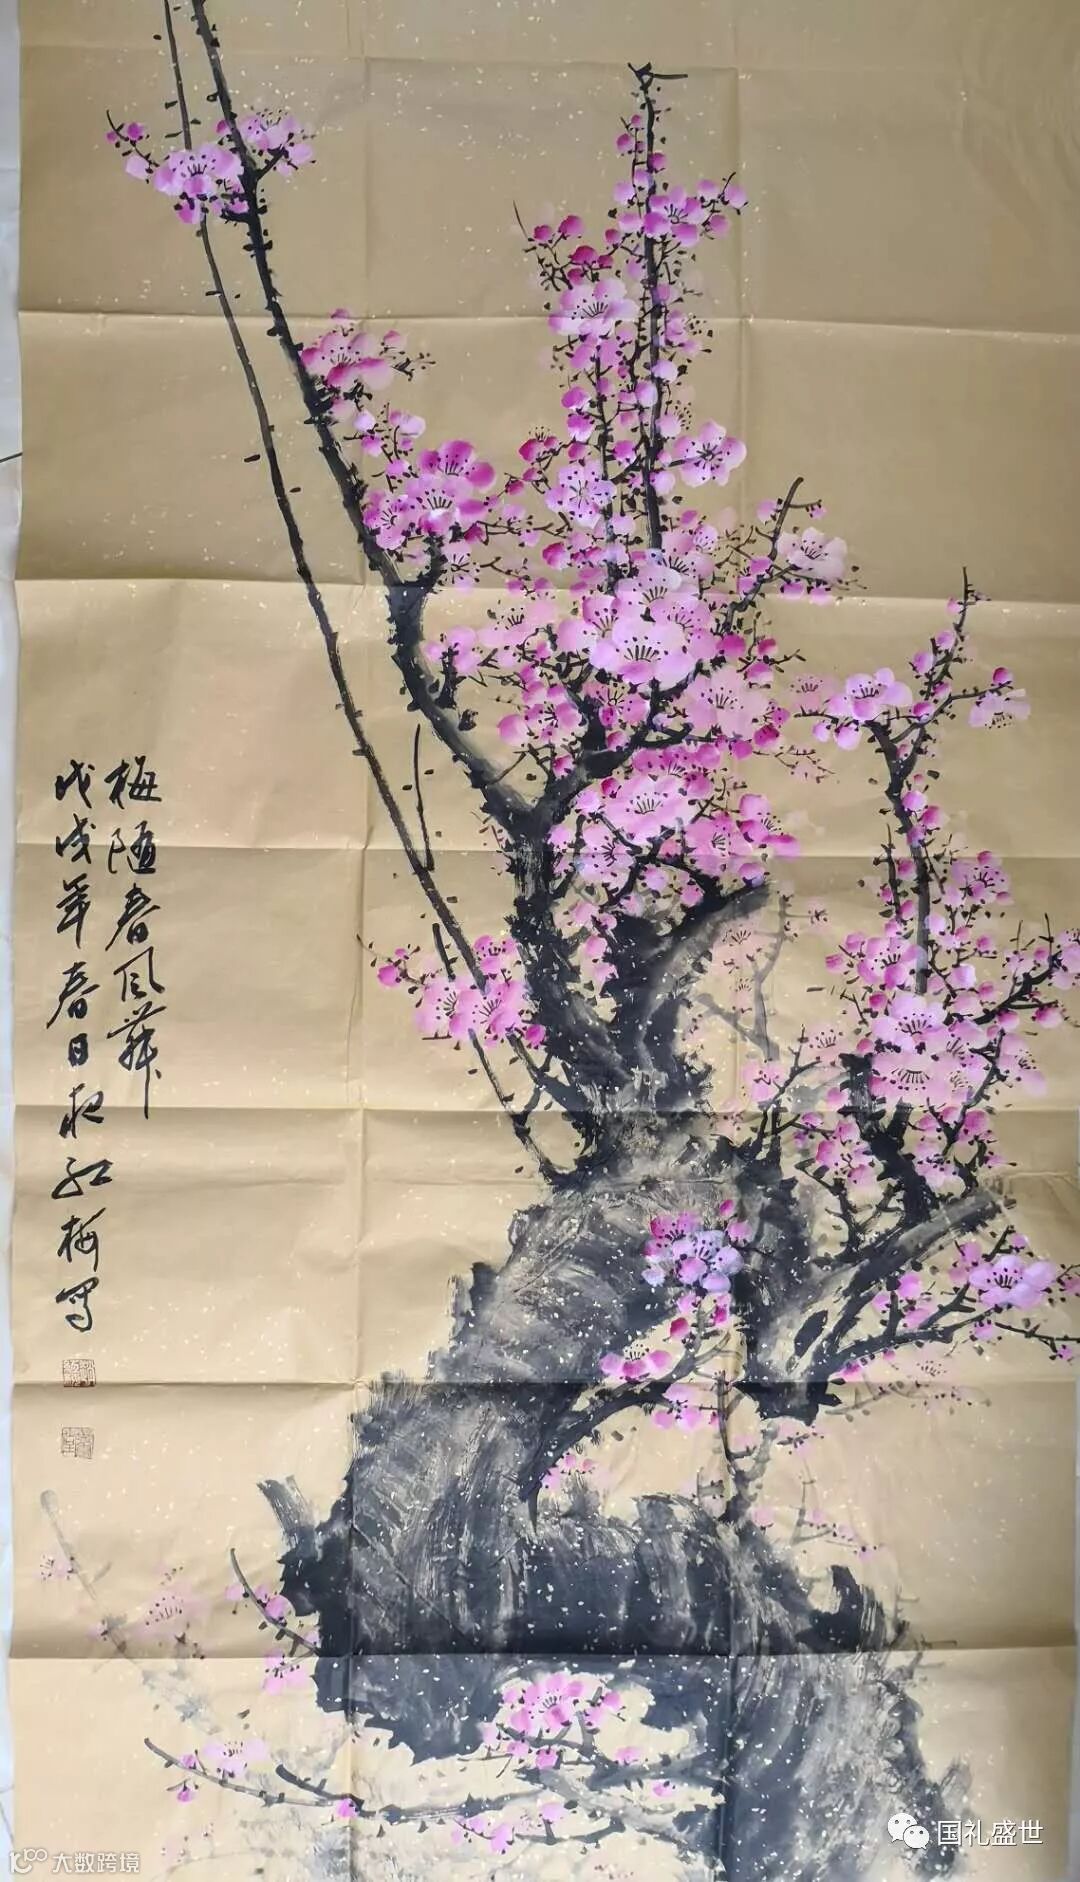 梅随春风舞
戊戌年春日

红梅写
国礼盛世
大数跨境